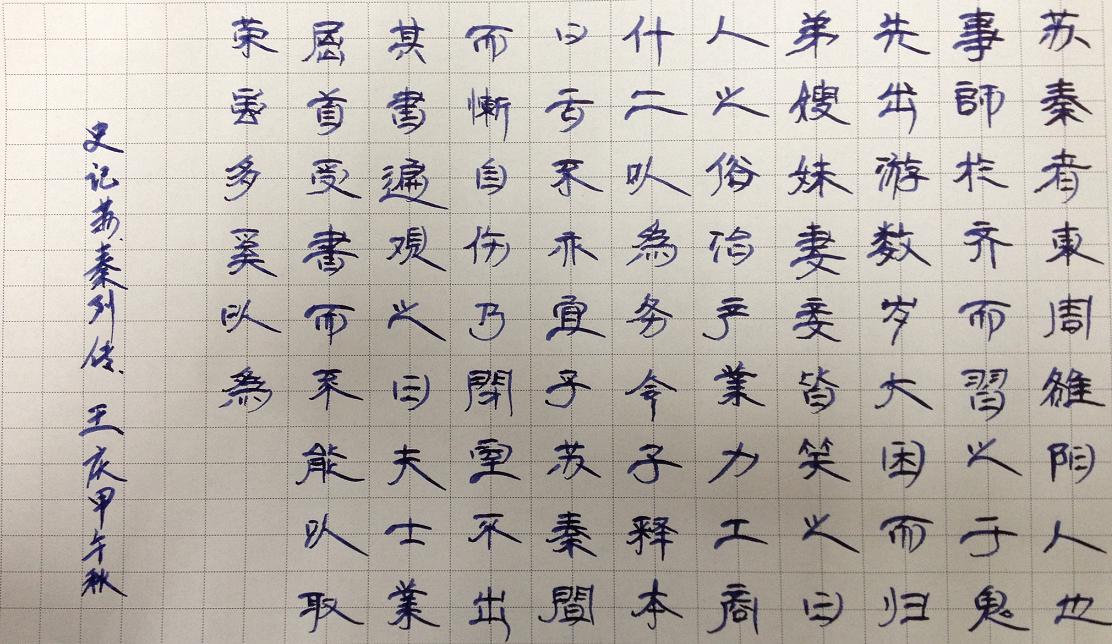 苏秦者東周雒阳人也
事師於齐而習之于鬼
先出游数岁大困而归
弟嫂妹妻妾皆笑之曰
人之俗治产業力工商
什二以為务今子释本
口舌不亦宜乎苏秦聞
而慚自伤乃閉室不出
其書遍观之曰夫士業
屈首受書而不能以取
荣多奚以為
史记苏秦列传 王庆甲午秋